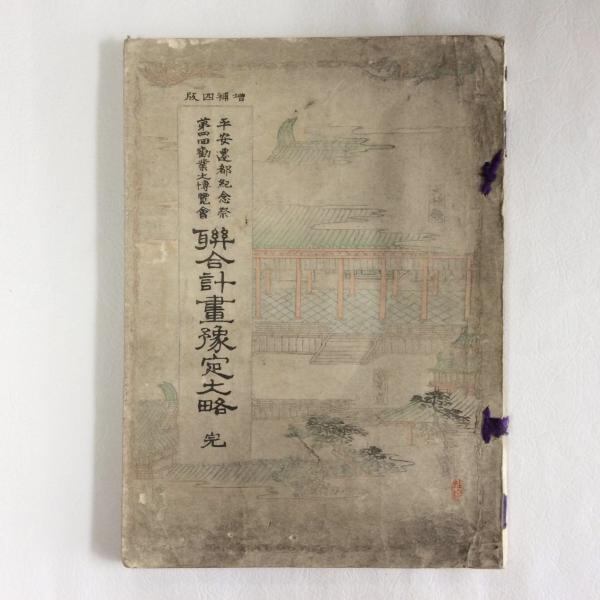 増補四版
平安遷都紀念祭
第四回勧業大博覧會
聯合計畫豫定大略 完